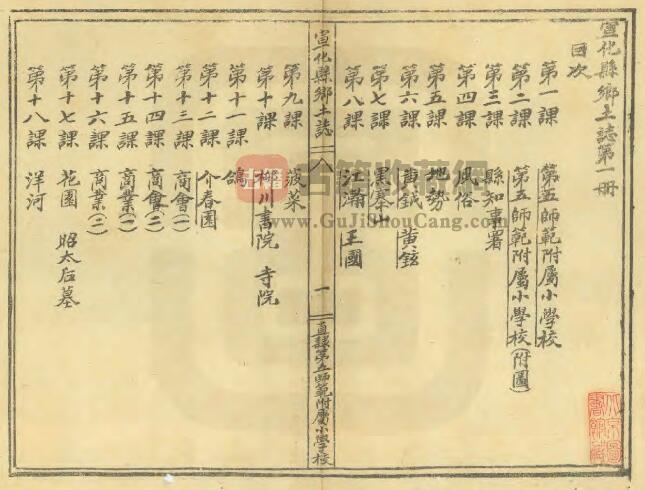 宣化縣鄉土誌第一冊
目次
第一課 第五師範附屬小學校
第二課 第五師範附屬小學校(附圖)
第三課 縣知事署
第四課 風俗
第五課 地勢
第六課 黄鉞 黄鉉
第七課
第八課 江滿 王國
宣化縣鄉土誌
一
直隸第五師範附屬小學校
第九課 菠菜
第十課 柳川書院 寺院
第十一課 鴿
第十二課 介春園
第十三課 商會(一)
第十四課 商會(二)
第十五課 商業(一)
第十六課 商業(二)
第十七課 花園 昭太后墓
第十八課 洋河
古籍收藏網
www.GuJiShouCang.com